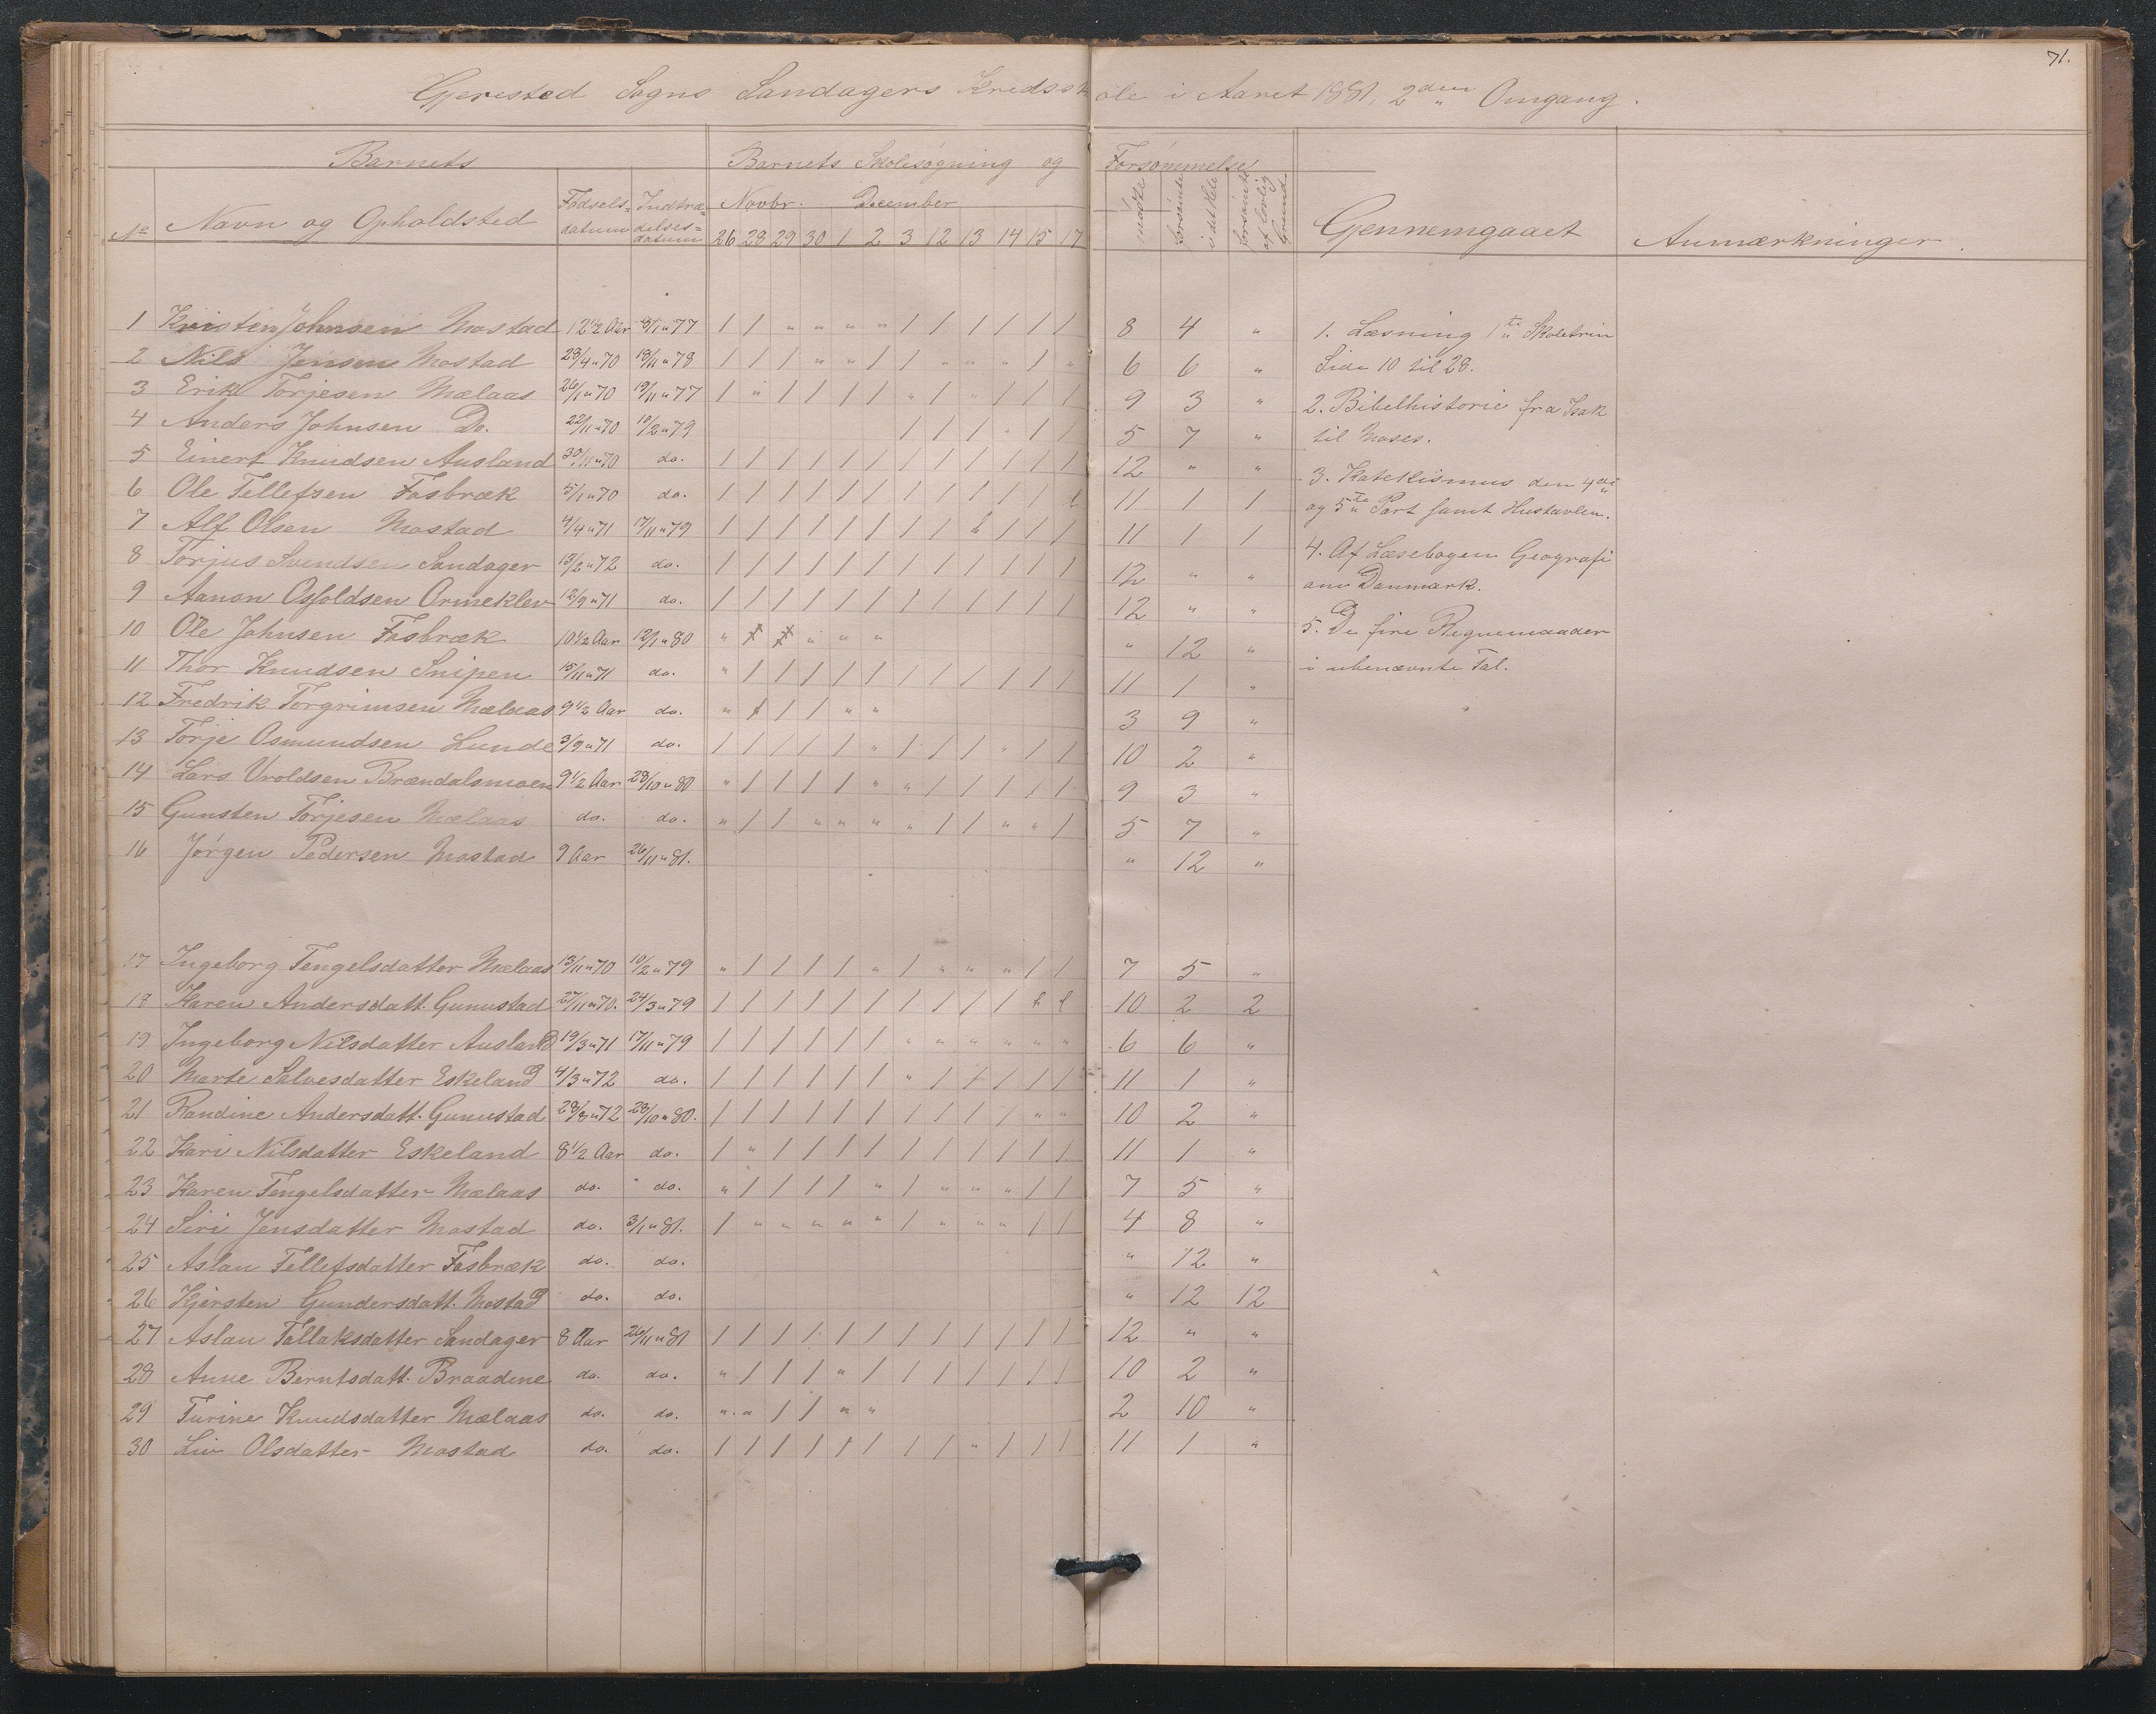 71.
Gjerestad Sogns Sandagers Kredsskole i Aaret 1881, 2den Omgang.
Barnets | Barnets Skolesøgning og Forsømmelse
No | Navn og Opholdsted | Fødsels-datum | Indtrædelses-datum | Novbr. December | mødte | forsømte i det Hele | forsømte af lovlig Grund | Gjennemgaaet | Anmærkninger.
26 28 29 30 1 2 3 12 13 14 15 17
1 Kristen Johnsen Mostad 12 1/2 Aar 8/1 " 77 / / " " " " / / / / / / 8 4 "
2 Nils Jensen Mostad 23/4 " 70 18/11 " 78 / / / " " / / " " " / " 6 6 "
3 Erik Torjesen Mælaas 26/1 " 70 19/11 " 77 / " / / / / " / " / / / 9 3 "
4 Anders Johnsen Do. 22/11 " 70 10/2 " 79 / / / " / / 5 7 "
5 Einert Knudsen Ausland 30/11 " 70 do. / / / / / / / / / / / / 12 " "
6 Ole Tellefsen Fosbræk 5/1 " 70 do. / / / / / / / / / / / l 11 1 1
7 Alf Olsen Mostad 4/4 " 71 17/11 " 79 / / / / / / / / l / / / 11 1 1
8 Torjus Svendsen Sandager 13/2 " 72 do. / / / / / / / / / / / / 12 " "
9 Aanon Osfoldsen Ormeklev 12/9 " 71 do. / / / / / / / / / / / / 12 " "
10 Ole Johnsen Fosbræk 10 1/2 Aar 12/1 " 80 " " " " 12 "
11 Thor Knudsen Snipen 15/11 " 71 do. " / / / / / / / / / / / 11 1 "
12 Fredrik Torgrimsen Mælaas 9 1/2 Aar do. " / / / " " 3 9 "
13 Torje Osmundsen Lunde 3/9 " 71 do. / / / / / " / / / " / / 10 2 "
14 Lars Vroldsen Brændalsmoen 9 1/2 Aar 28/10 " 80 " / / / / " " / / / / / 9 3 "
15 Gunsten Torjesen Mælaas do. do. " / / " " " " / / " " / 5 7 "
16 Jørgen Pedersen Mostad 9 Aar 26/11 " 81. " 12 "
17 Ingeborg Tengelsdatter Mælaas 13/11 " 70 10/2 " 79 " / / / / " / " " " / / 7 5 "
18 Karen Andersdatt. Gunustad 27/11 " 70. 24/3 " 79 / / / / / / / / / / l l 10 2 2
19 Ingeborg Nilsdatter Ausland 19/3 " 71 17/11 " 79 / / / / / / " " " " " " 6 6 "
20 Marte Salvesdatter Eskeland 4/3 " 72 do. / / / / / / " / / / / / 11 1 "
21 Randine Andersdatt. Gunustad 28/8 " 72 28/10 " 80. / / / / / / / / / / " " 10 2 "
22 Kari Nilsdatter Eskeland 8 1/2 Aar do. / " / / / / / / / / / / 11 1 "
23 Karen Tengelsdatter Mælaas do. do. " / / / / " / " " " / / 7 5 "
24 Siri Jensdatter Mostad do. 3/1 " 81. / " " " " " / " " " / / 4 8 "
25 Aslau Tellefsdatter Fosbræk do. do. " 12 "
26 Kjersten Gundersdatt. Mostad do. do. " 12 12
27 Aslau Tallaksdatter Sandager 8 Aar 26/11 " 81 / / / / / / / / / / / / 12 " "
28 Anne Berntsdatt. Braadene do. do. " / / / " / / / / / / / 10 2 "
29 Turine Knudsdatter Mælaas do. do. " " / / " " 2 10 "
30 Liv Olsdatter Mostad do. do. / / / / / / / / " / / / 11 1 "
1. Læsning 1ste Skoletrin
Side 10 til 28.
2. Bibelhistorie fra Isak
til Moses.
3. Katekismus den 4de
og 5te Part samt Hustavlen.
4. Af Læsebogen Geografi
om Danmark.
5. De fire Regnemaader
i ubenævnte Tal.